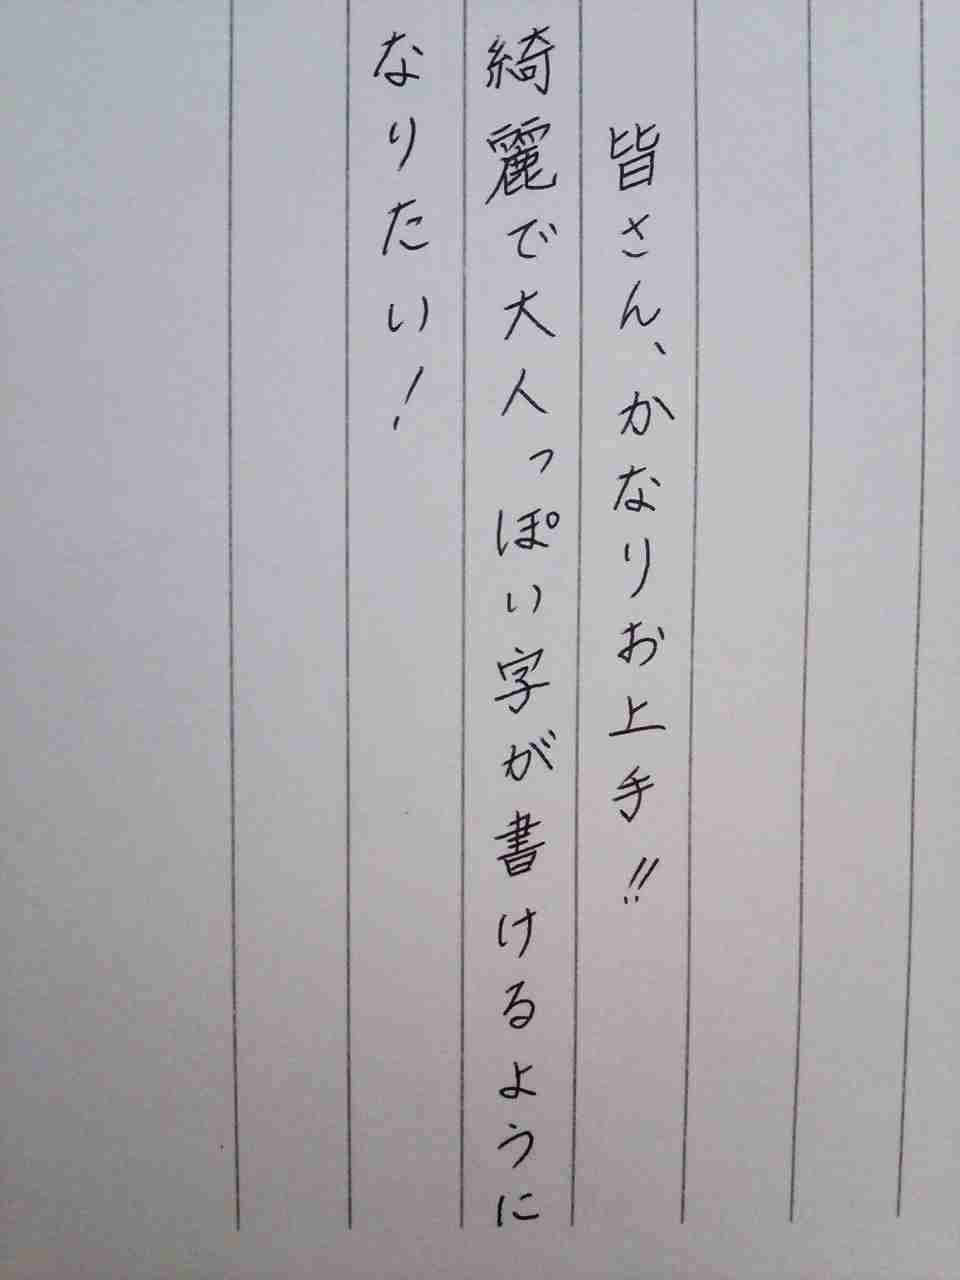 皆さん、かなりお上手!!
綺麗で大人っぽい字が書けるように
なりたい!